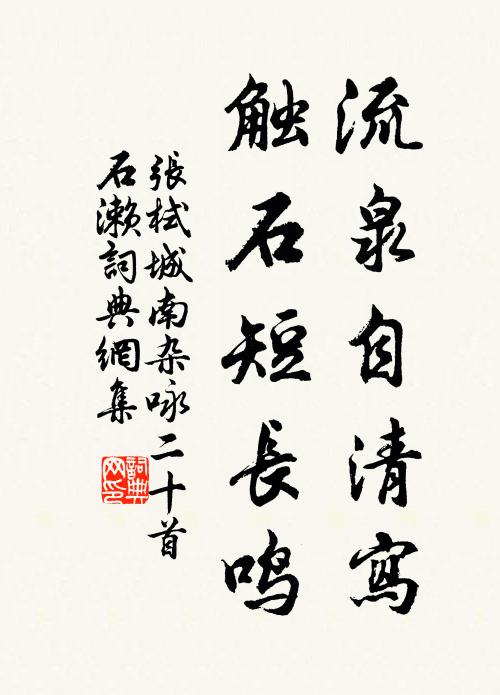 流泉自清寫
触石短長鸣
張栻城南杂咏二十首
石濑詞典網集
詞典网印